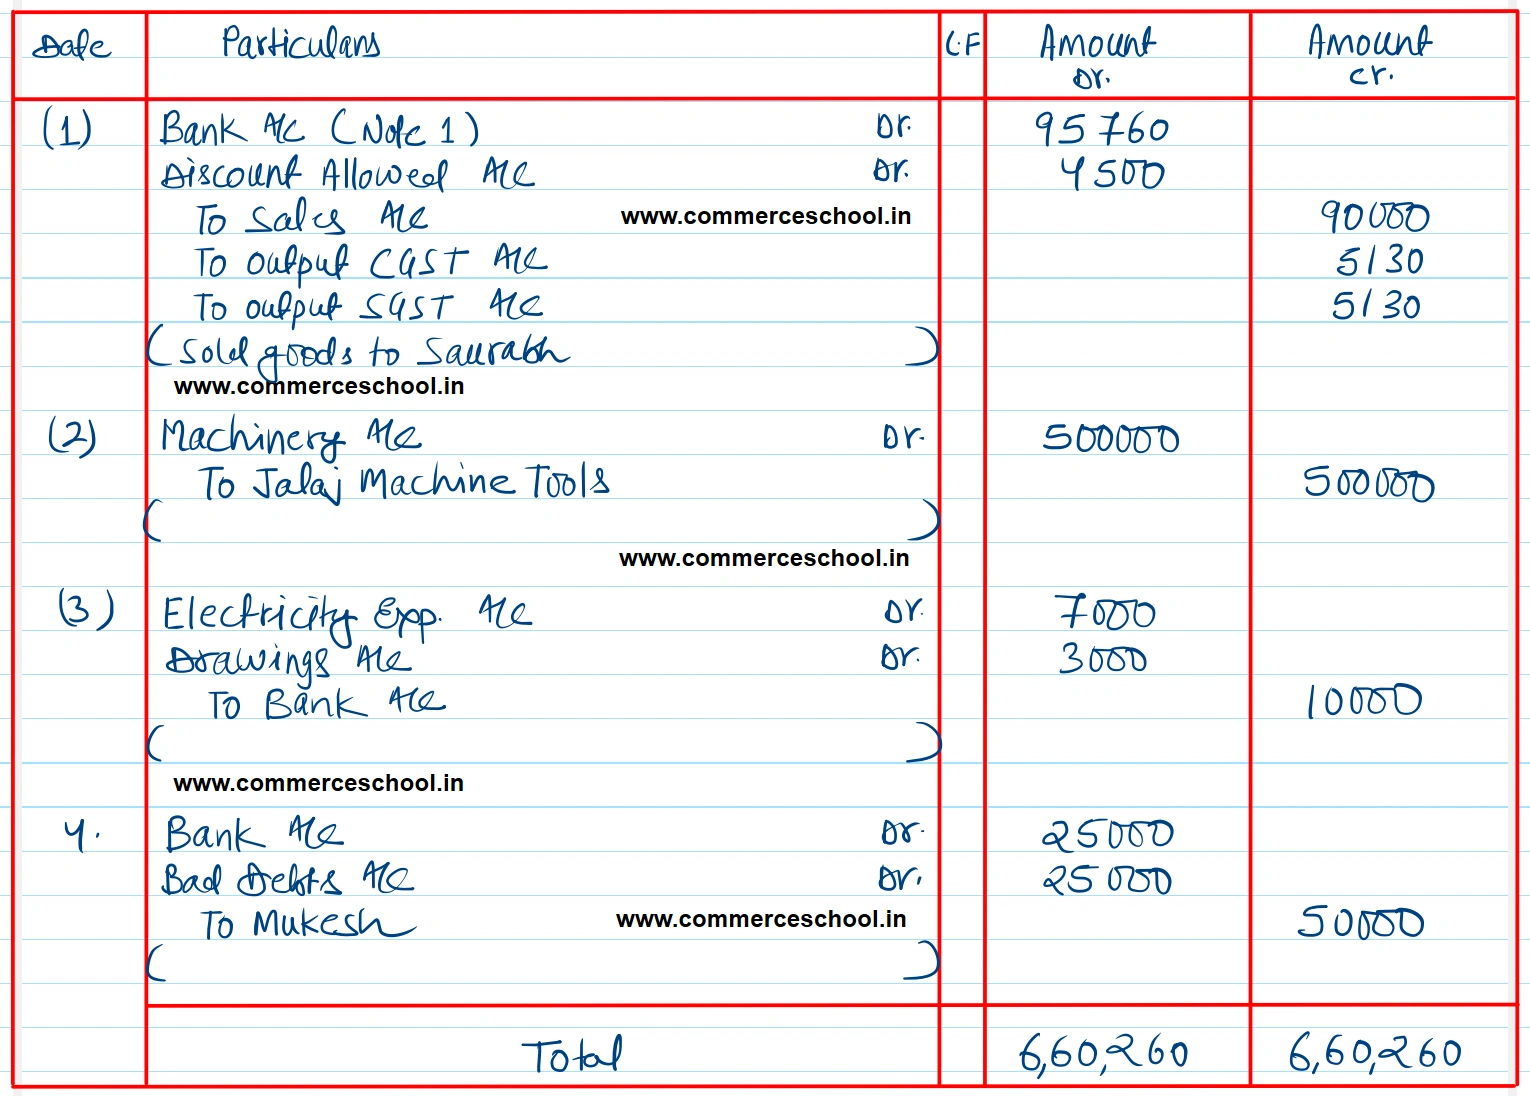 Date Particulars L.F Amount Dr. Amount Cr.
(1) Bank A/c (Note 1) Dr. 95760
Discount Allowed A/c Dr. 4500
To Sales A/c www.commerceschool.in 90000
To output CGST A/c 5130
To output SGST A/c 5130
(Sold goods to Saurabh)
www.commerceschool.in
(2) Machinery A/c Dr. 500000
To Jalaj Machine Tools 500000
( )
www.commerceschool.in
(3) Electricity Exp. A/c Dr. 7000
Drawings A/c Dr. 3000
To Bank A/c 10000
( )
www.commerceschool.in
4. Bank A/c Dr. 25000
Bad Debts A/c Dr. 25000
To Mukesh www.commerceschool.in 50000
( )
Total 6,60,260 6,60,260